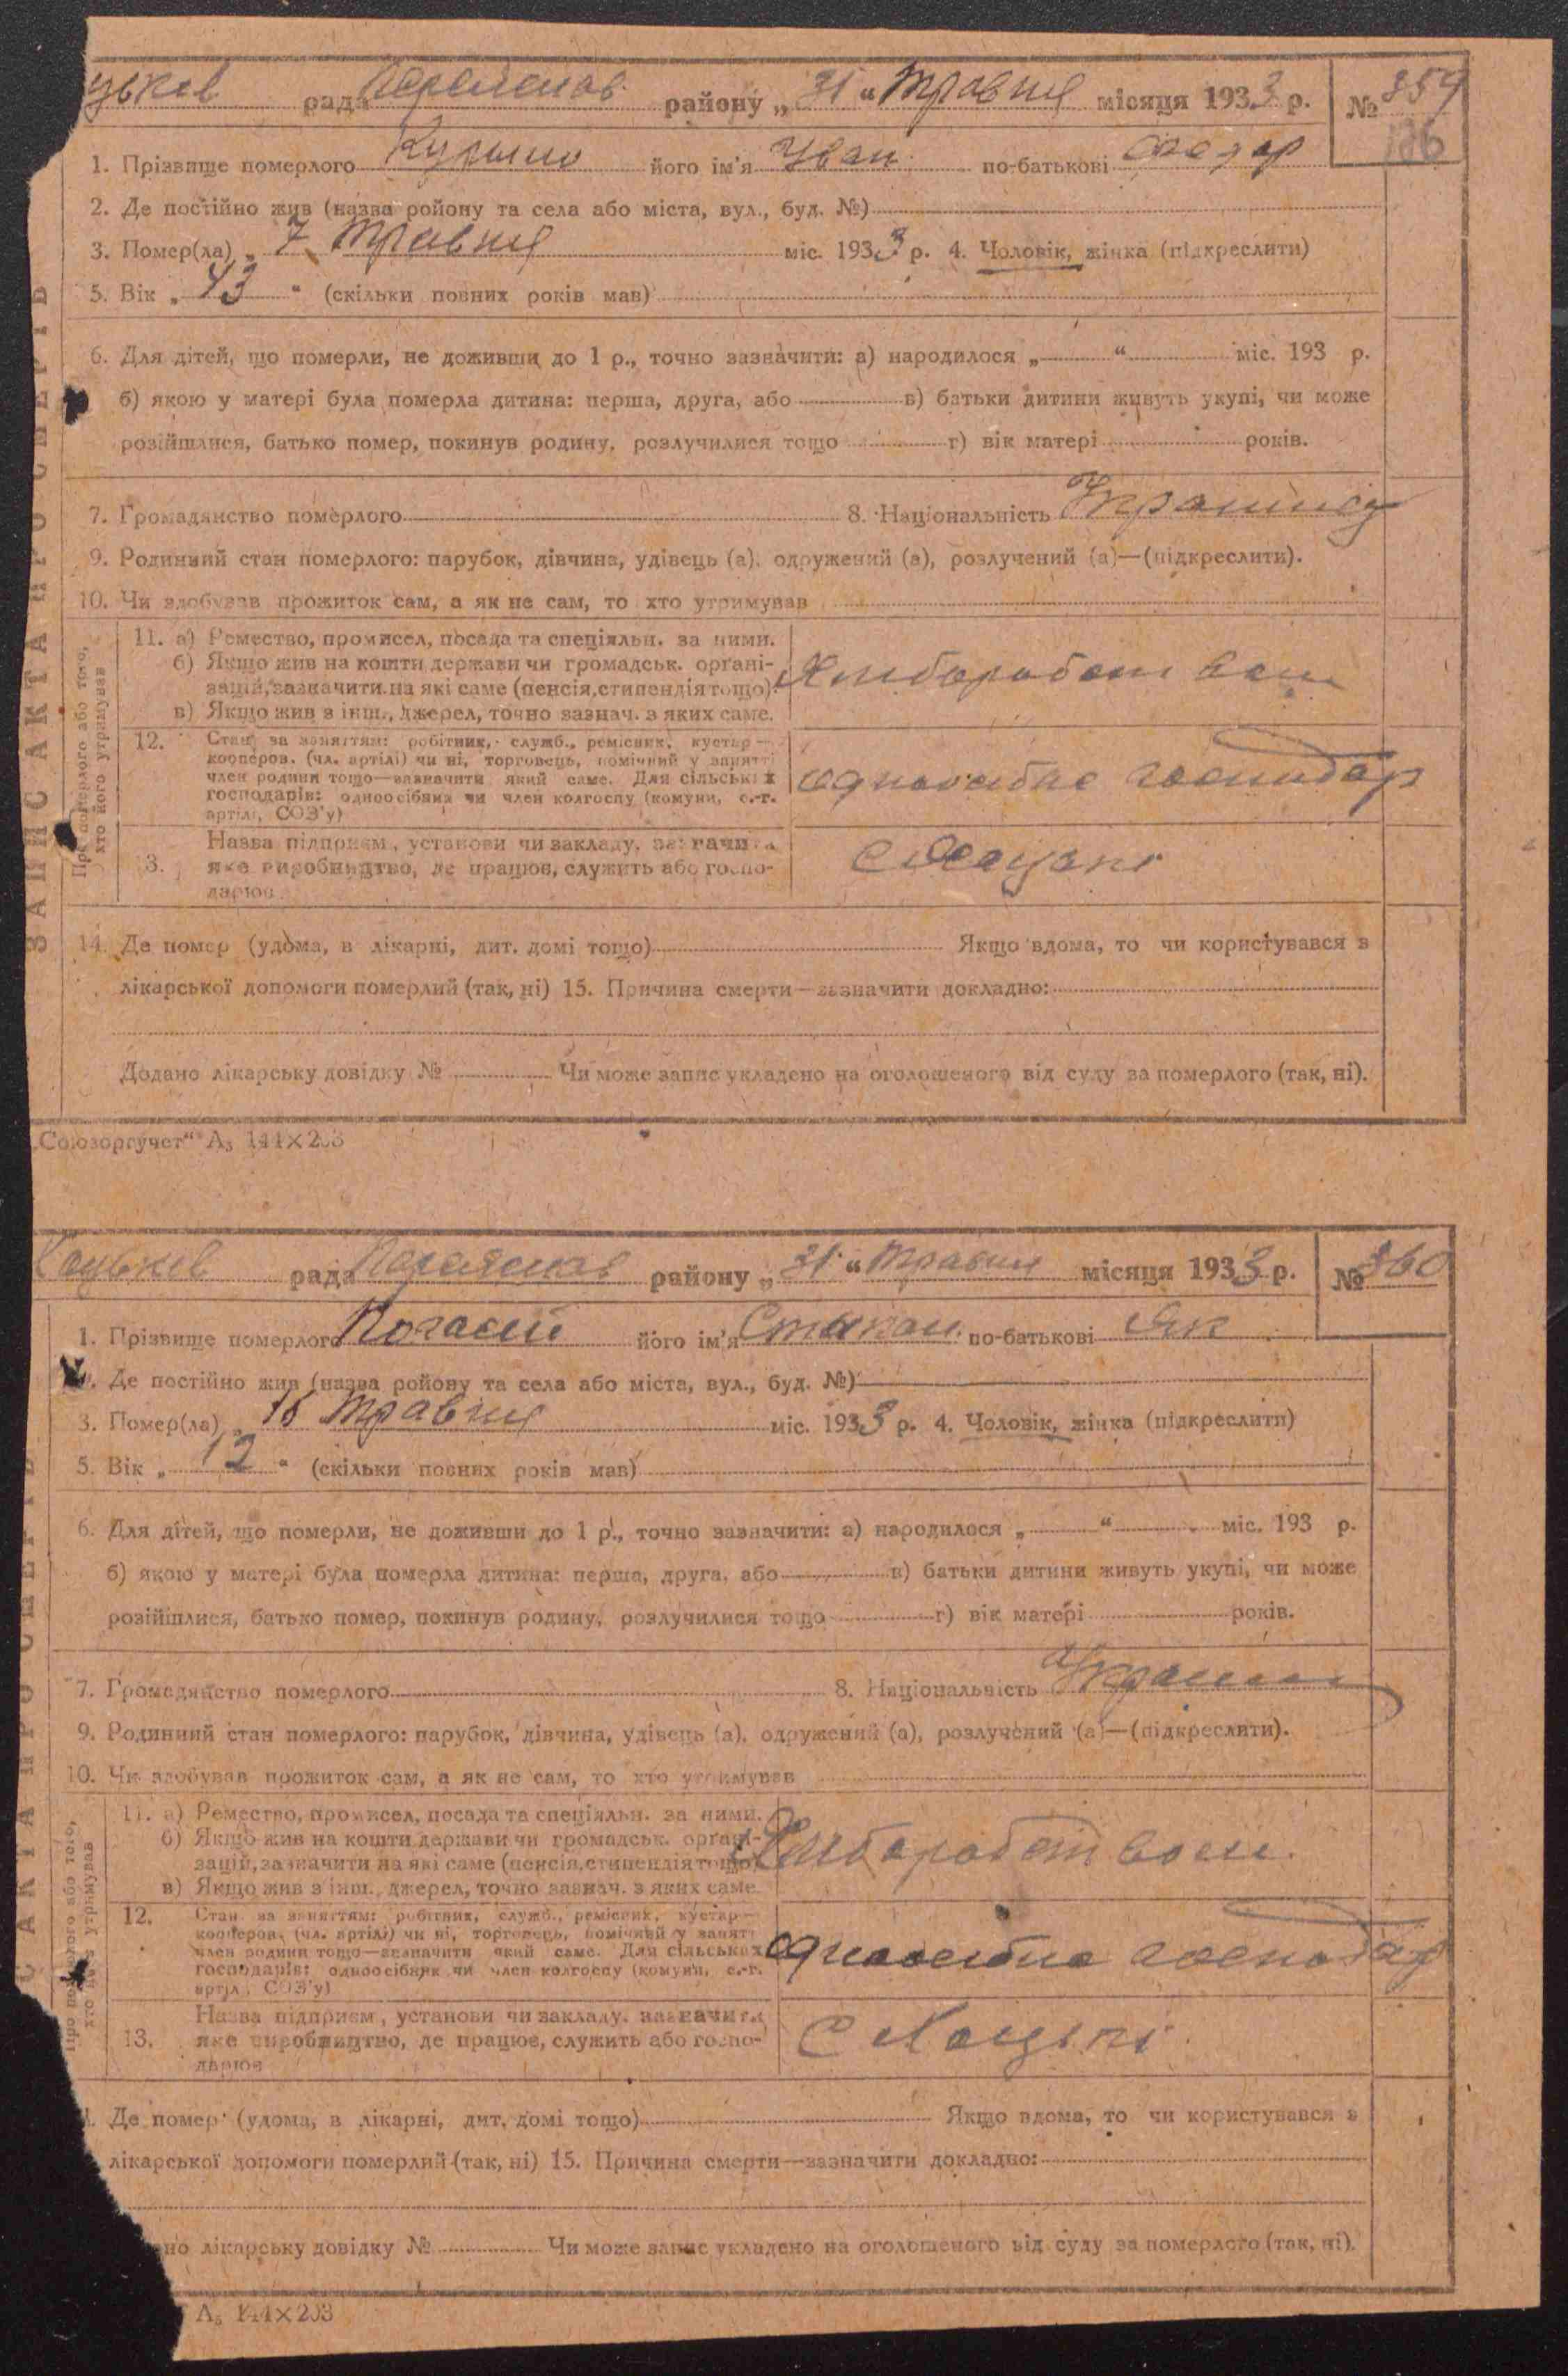 цьків рада Переяслав району „31“ травня місяця 1933 р. № 859
186
1. Прізвище померлого його ім'я Іван по-батькові Федор
2. Де постійно жив (назва ройону та села або міста, вул., буд. №)
3. Помер(ла) „7 травня міс. 1933 р. 4. Чоловік, жінка (підкреслити)
5. Вік „43“ (скільки повних років мав)
6. Для дітей, що померли, не доживши до 1 р., точно зазначити: а) народилося „ “ міс. 193 р.
б) якою у матері була померла дитина: перша, друга, або в) батьки дитини живуть укупі, чи може
розійшлися, батько помер, покинув родину, розлучилися тощо г) вік матері років.
7. Громадянство померлого 8. Національність
9. Родинний стан померлого: парубок, дівчина, удівець (а), одружений (а), розлучений (а)—(підкреслити).
10. Чи здобував прожиток сам, а як не сам, то хто утримував
ЗАПИС АКТА ПРО СМЕРТЬ
Про померлого або того, хто його утримував
11. а) Ремество, промисел, посада та спеціяльн. за ними.
б) Якщо жив на кошти держави чи громадськ. орґані-
зацій, зазначити на які саме (пенсія, стипендія тощо).
в) Якщо жив з інш., джерел, точно зазнач. з яких саме.
Хліборобством
12. Стан за заняттям: робітник, служб., ремісник, кустар—
коопєров. (чл. артілі) чи ні, торговець, помічний у занятті
член родини тощо—зазначити який саме. Для сільських
господарів: одноосібник чи член колгоспу (комуни, с.-г.
артілі, СОЗ'у)
одноосібне господар
13. Назва підприєм., установи чи закладу, зазначити
яке виробництво, де працює, служить або госпо-
дарює
с Хоцьки
14. Де помер (удома, в лікарні, дит. домі тощо) Якщо вдома, то чи користувався з
лікарської допомоги померлий (так, ні) 15. Причина смерти—зазначити докладно:
Додано лікарську довідку № Чи може запис укладено на оголошеного від суду за померлого (так, ні).
„Союзоргучет“ А₅ 144×203
Хоцьків рада Переяслав району „31“ травня місяця 1933 р. № 860
1. Прізвище померлого його ім'я Степан по-батькові Як
Де постійно жив (назва ройону та села або міста, вул., буд. №)
3. Помер(ла) „ травня міс. 1933 р. 4. Чоловік, жінка (підкреслити)
5. Вік „12“ (скільки повних років мав)
6. Для дітей, що померли, не доживши до 1 р., точно зазначити: а) народилося „ “ міс. 193 р.
б) якою у матері була померла дитина: перша, друга, або в) батьки дитини живуть укупі, чи може
розійшлися, батько помер, покинув родину, розлучилися тощо г) вік матері років.
7. Громадянство померлого 8. Національність
9. Родинний стан померлого: парубок, дівчина, удівець (а), одружений (а), розлучений (а)—(підкреслити).
10. Чи здобував прожиток сам, а як не сам, то хто утримував
С АКТА ПРО СМЕРТЬ
Про померлого або того, хто його утримував
11. а) Ремество, промисел, посада та спеціяльн. за ними.
б) Якщо жив на кошти держави чи громадськ. орґані-
зацій, зазначити на які саме (пенсія, стипендія тощо)
в) Якщо жив з інш., джерел, точно зазнач. з яких саме.
Хліборобством
12. Стан за заняттям: робітник, служб., ремісник, кустар—
кооперов. (чл. артілі) чи ні, торговець, помічний у занятт
член родини тощо—зазначити який саме. Для сільських
господарів: одноосібник чи член колгоспу (комуни, с.-г.
артіл, СОЗ'у)
одноосібна господар
13. Назва підприєм., установи чи закладу, зазначити
яке виробництво, де працює, служить або госпо-
дарює
с Хоцьки
Де помер (удома, в лікарні, дит. домі тощо) Якщо вдома, то чи користувався з
лікарської допомоги померлий (так, ні) 15. Причина смерти—зазначити докладно:
но лікарську довідку № Чи може запис укладено на оголошеного від суду за померлого (так, ні).
А₅ 144×203